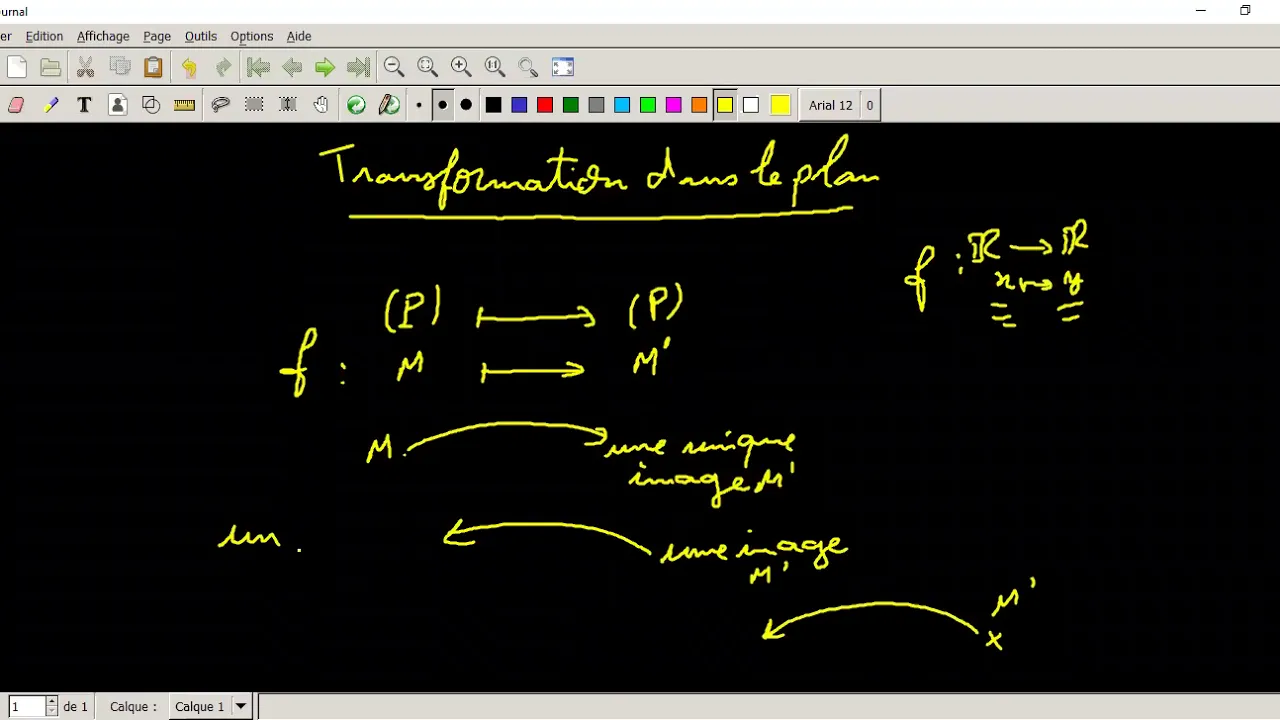 urnal
er Edition Affichage Page Outils Options Aide
Arial 12
Transformation dans le plan
f : ℝ → ℝ
x ↦ y
(P) ⟼ (P)
f : M ⟼ M'
M. une unique
image M'
un . une image
M'
M'
x
1 de 1 Calque : Calque 1